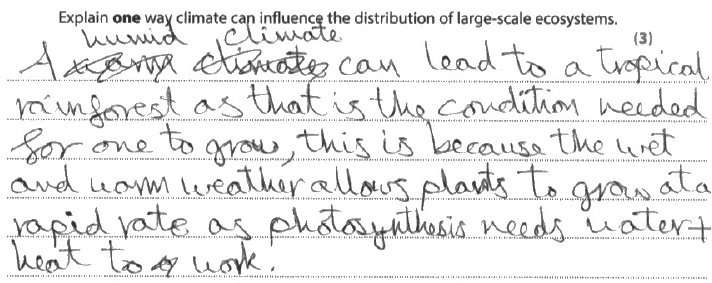 Explain one way climate can influence the distribution of large-scale ecosystems.
(3)
humid climate
A can lead to a tropical
rainforest as that is the condition needed
for one to grow, this is because the wet
and warm weather allows plants to grow at a
rapid rate as photosynthesis needs water +
heat to work.